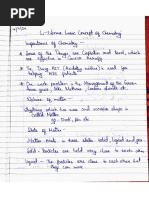 L-1 Some Basic Concept of Chemistry
Importance of Chemistry :-
Some of the Drugs are Cisplatin and taxol, which
are effective in Cancer therapy
The Drug AZT (Azidothymidine) is used for
helping AIDS patients
Our work problem is the Management of the Green-
house gases, like Methane, Carbon dioxide etc.
Nature of matter :-
Anything which has mass and occupies space is
called Matter.
eg: Book, Pen etc
State of Matter :-
Matter exists in three states solid, liquid and gas
Solid - Particles are held very close to each other
Liquid - The Particles are close to each other but
they can move